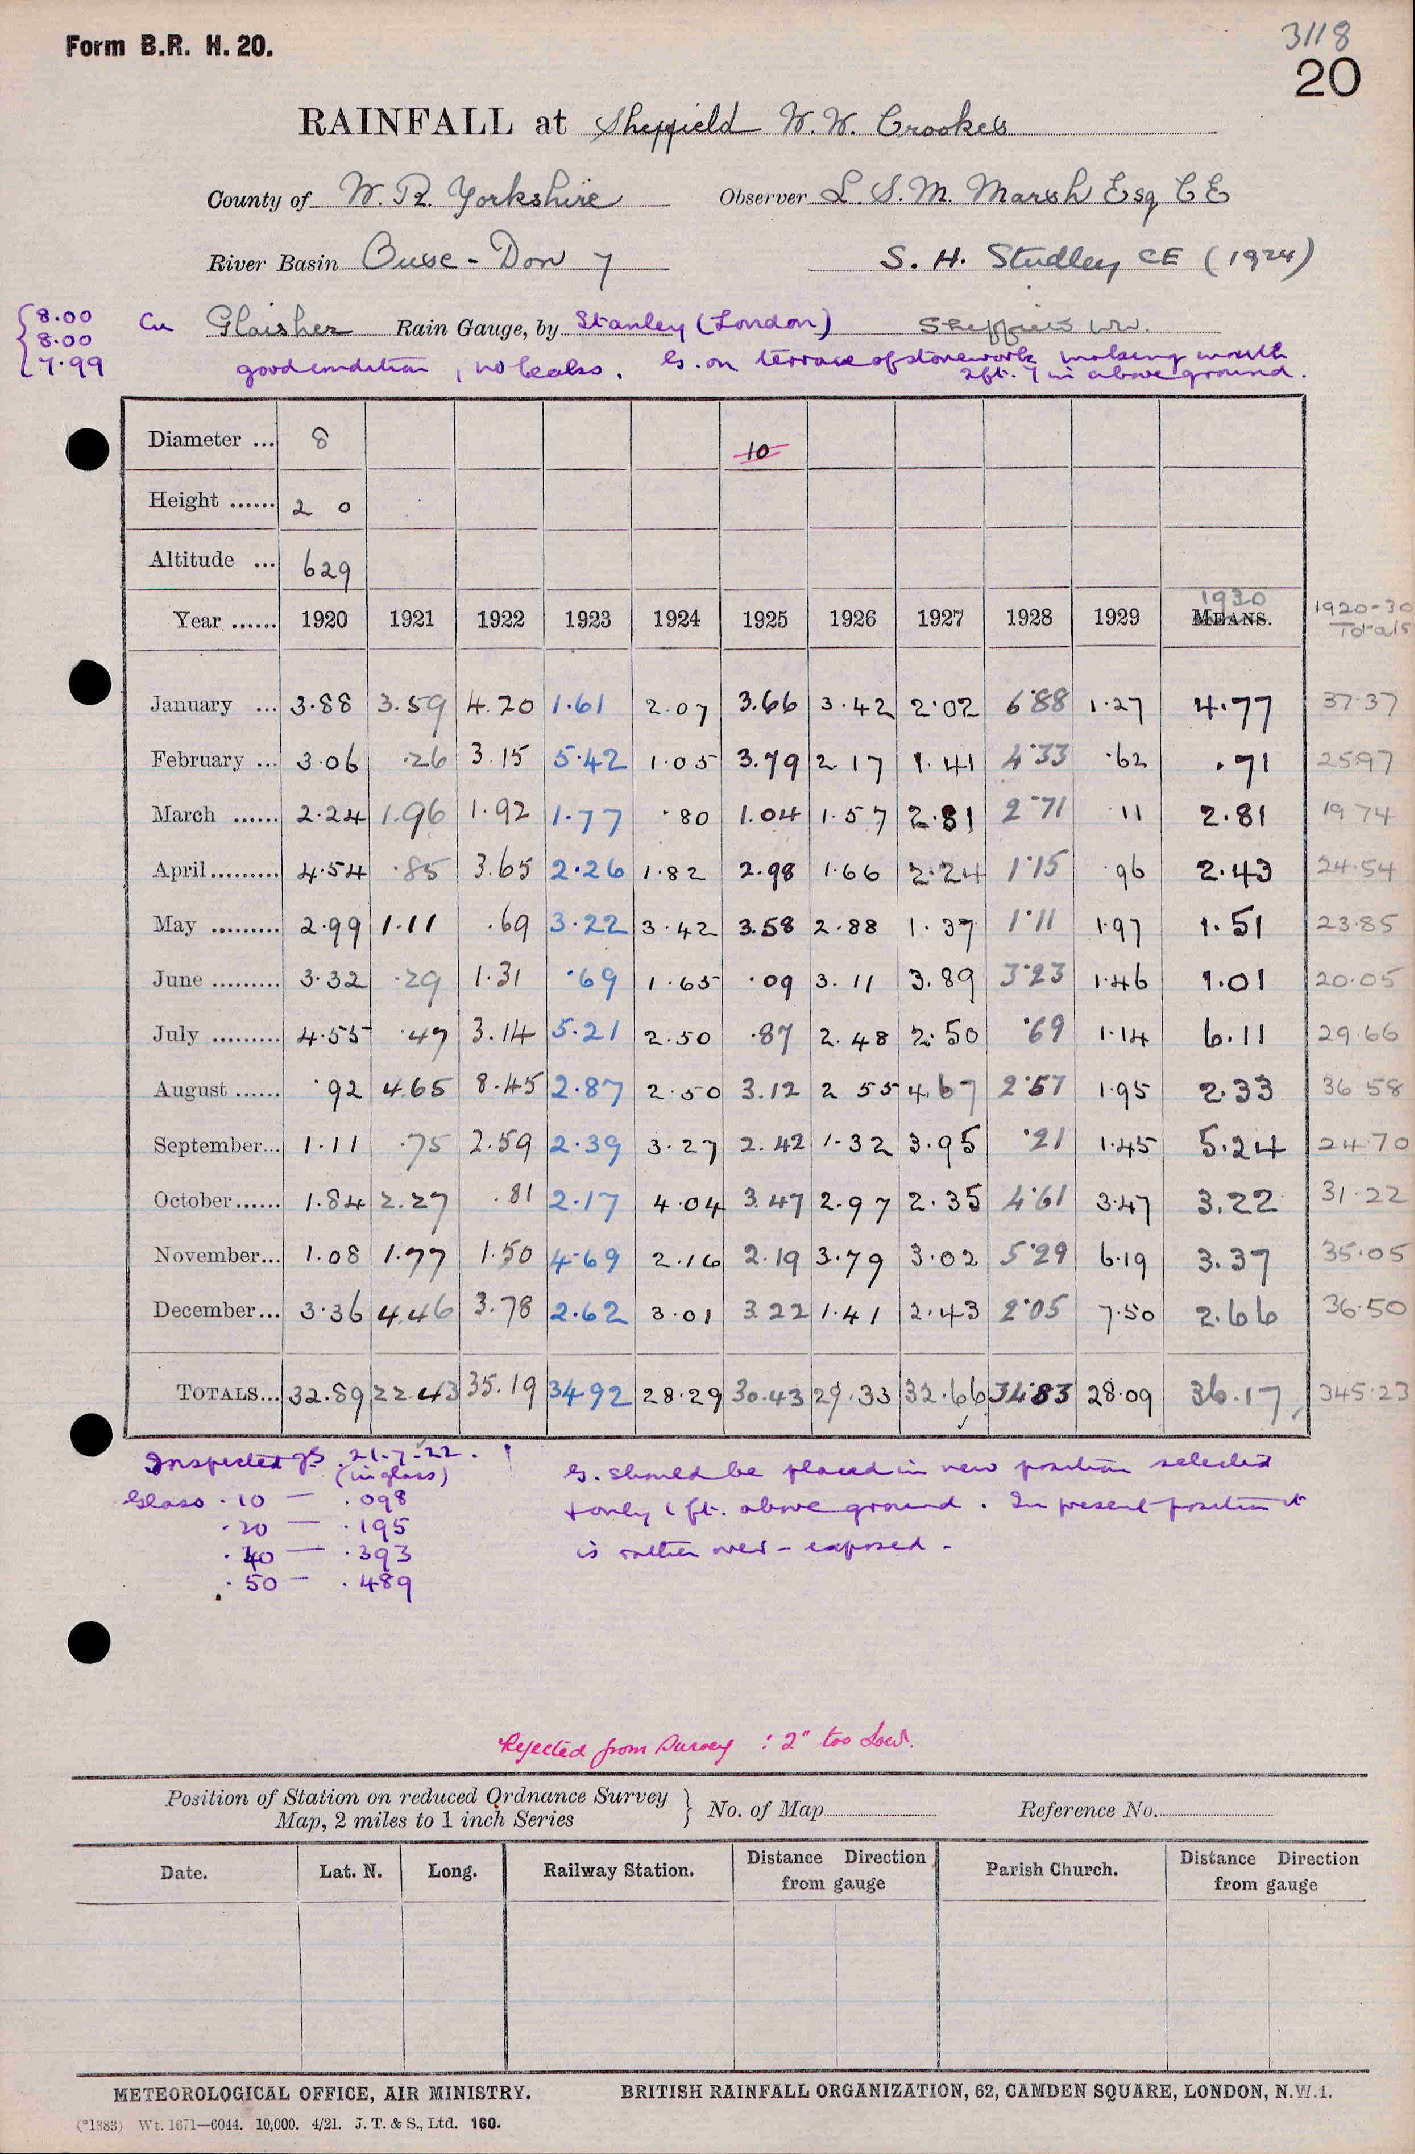 Form B.R. H. 20.
3118
20
RAINFALL at Sheffield W. W. Crookes
County of W. R. Yorkshire Observer L. S. M. Marsh Esq C E
River Basin Ouse - Don 7 S. H. Studley CE (1924)
8.00
8.00
7.99
Cu Glaisher Rain Gauge, by Stanley (London) Sheffield WW.
good condition, no leaks. G. on terrace of stonework making mouth
2ft. 7 in above ground.
Diameter ... 8 10
Height ...... 2 0
Altitude ... 629
Year ...... 1920 1921 1922 1923 1924 1925 1926 1927 1928 1929 1930 MEANS. 1920-30 Totals
January ... 3.88 3.59 4.20 1.61 2.07 3.66 3.42 2.02 6.88 1.27 4.77 37.37
February ... 3.06 .26 3.15 5.42 1.05 3.79 2.17 1.41 4.33 .62 .71 25.97
March ...... 2.24 1.96 1.92 1.77 .80 1.04 1.57 2.81 2.71 .11 2.81 19.74
April ......... 4.54 .85 3.65 2.26 1.82 2.98 1.66 2.24 1.15 .96 2.43 24.54
May ......... 2.99 1.11 .69 3.22 3.42 3.58 2.88 1.37 1.11 1.97 1.51 23.85
June ......... 3.32 .29 1.31 .69 1.65 .09 3.11 3.89 3.23 1.46 1.01 20.05
July ......... 4.55 .47 3.14 5.21 2.50 .87 2.48 2.50 .69 1.14 6.11 29.66
August ...... .92 4.65 8.45 2.87 2.50 3.12 2.55 4.67 2.57 1.95 2.33 36.58
September... 1.11 .75 2.59 2.39 3.27 2.42 1.32 3.95 .21 1.45 5.24 24.70
October...... 1.84 2.27 .81 2.17 4.04 3.47 2.97 2.35 4.61 3.47 3.22 31.22
November... 1.08 1.77 1.50 4.69 2.16 2.19 3.79 3.02 5.29 6.19 3.37 35.05
December... 3.36 4.46 3.78 2.62 3.01 3.22 1.41 2.43 2.05 7.50 2.66 36.50
TOTALS... 32.89 22.43 35.19 34.92 28.29 30.43 29.33 32.66 34.83 28.09 36.17 345.23
Inspected 21.7.22.
(in glass)
Glass .10 — .098
.20 — .195
.40 — .393
.50 — .489
G. should be placed in new position selected
& only 1 ft. above ground. In present position it
is rather over-exposed.
Rejected from Survey : 2" too Low.
Position of Station on reduced Ordnance Survey
Map, 2 miles to 1 inch Series } No. of Map Reference No.
Date. Lat. N. Long. Railway Station. Distance Direction from gauge Parish Church. Distance Direction from gauge
METEOROLOGICAL OFFICE, AIR MINISTRY. BRITISH RAINFALL ORGANIZATION, 62, CAMDEN SQUARE, LONDON, N.W.1.
(*1383) Wt. 1671—6044. 10,000. 4/21. J. T. & S., Ltd. 160.